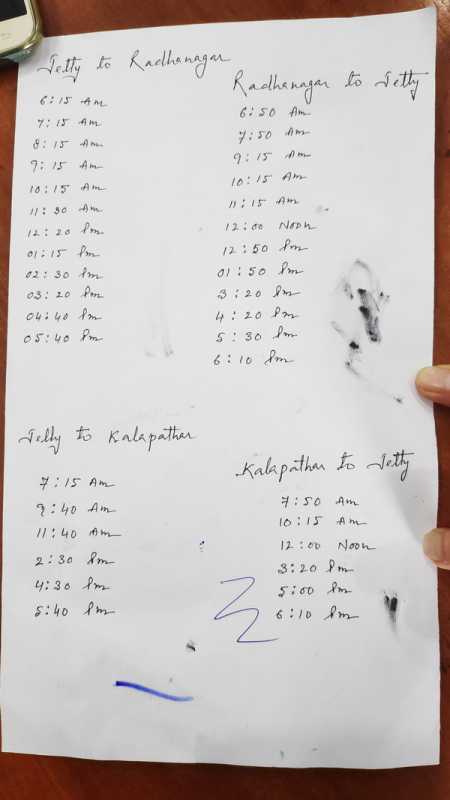 Jetty to Radhanagar
6:15 Am
7:15 Am
8:15 Am
9:15 Am
10:15 Am
11:30 Am
12:20 Pm
01:15 Pm
02:30 Pm
03:20 Pm
04:40 Pm
05:40 Pm
Radhanagar to Jetty
6:50 Am
7:50 Am
9:15 Am
10:15 Am
11:15 Am
12:00 Noon
12:50 Pm
01:50 Pm
3:20 Pm
4:20 Pm
5:30 Pm
6:10 Pm
Jetty to Kalapathar
7:15 Am
9:40 Am
11:40 Am
2:30 Pm
4:30 Pm
5:40 Pm
Kalapathar to Jetty
7:50 Am
10:15 Am
12:00 Noon
3:20 Pm
5:00 Pm
6:10 Pm